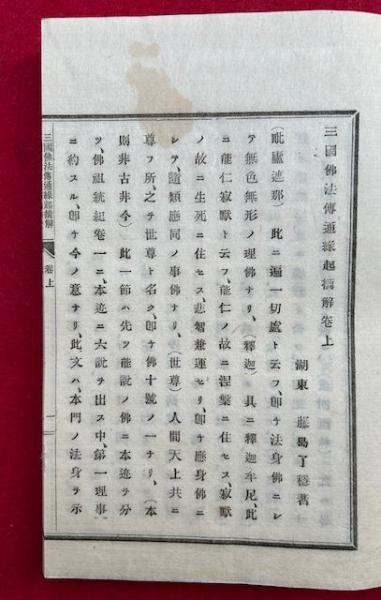 三國佛法傳通縁起講解卷上
湖東 藤島了穩著
(毗盧遮那)此ニ遍一切處ト云フ、卽チ法身佛ニシ
テ無色無形ノ理佛ナリ、(釋迦)具ニ釋迦牟尼、此
ニ能仁寂默ト云フ、能仁ノ故ニ涅槃ニ住セス、寂默
ノ故ニ生死ニ住セス、悲智兼運セリ、卽チ應身佛ニ
シテ、隨類應同ノ事佛ナリ、(世尊)人間天上共ニ
尊フ所、之ヲ世尊ト名ク、卽チ佛十號ノ一ナリ、(本
則非古非今)此一節ハ先ツ能說ノ佛ニ本迹ヲ分
ツ、佛祖統紀卷一ニ、本迹ニ六說ヲ出ス中、第一理事
ニ約スル、卽チ今ノ意ナリ、此文ハ、本門ノ法身ヲ示
三國佛法傳通縁起講解 卷上 一